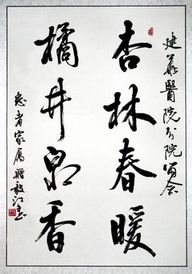 建華醫院分院留念
杏林春暖
橘井泉香
患者家屬